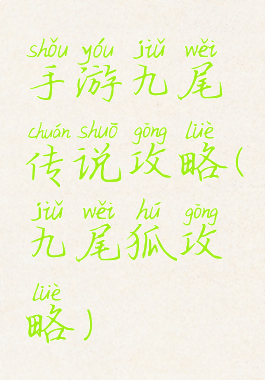 shǒu yóu jiǔ wěi
手游九尾
chuán shuō gōng lüè
传说攻略(
jiǔ wěi hú gōng
九尾狐攻
lüè
略)